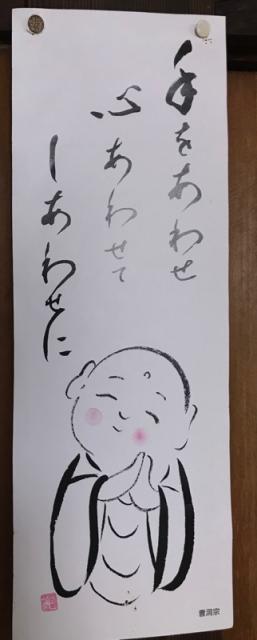 手をあわせ
心あわせて
しあわせに
曹洞宗